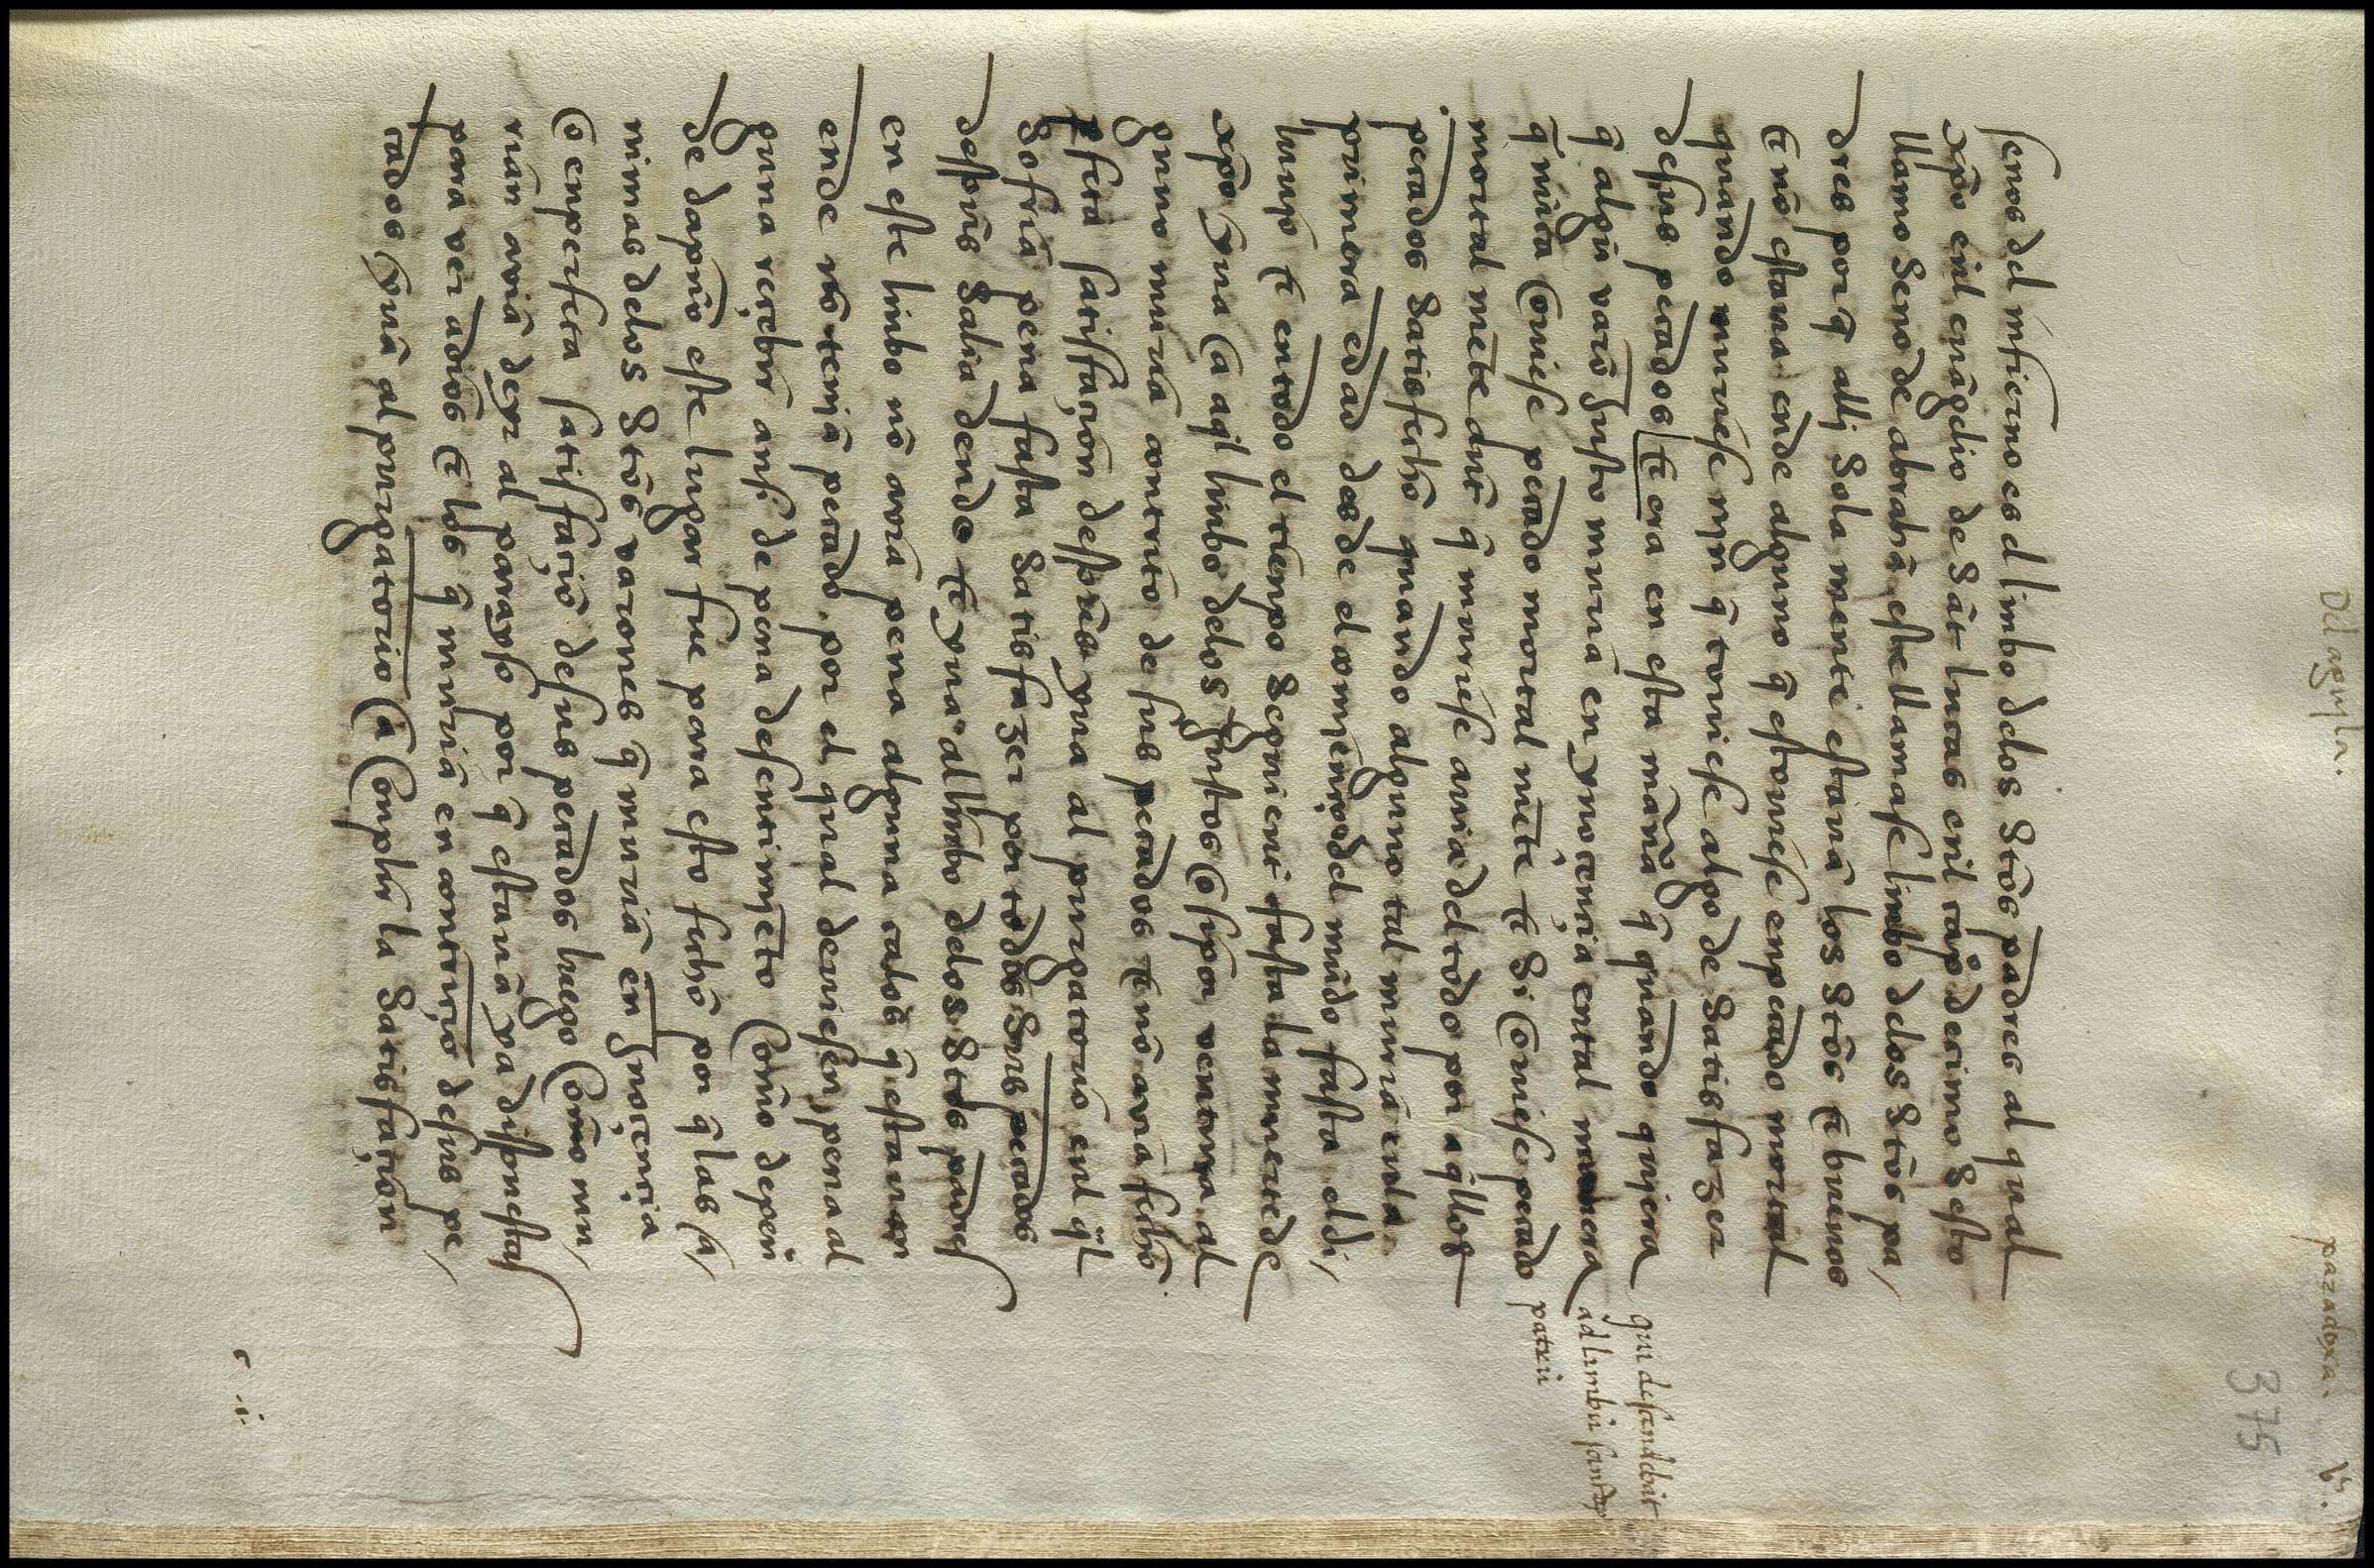 Del agusti. paradoxa. v.
375
senos del infierno es el limbo delos Stōs padres al qual
xpō enl euāgelio de Sāt lucas enl capº decimo sesto
llamo seno de abrahā este llamase limbo delos Stōs pa/
dres porq̄ allj sola mente estauā los Stōs τ buenos
τ nō estaua ende alguno q̄ estouiese enpecado mortal
quando muriese njn q̄ touiese algo de satisfazer
desus pecados τ era en esta manã q̄ quando quiera
q̄ algū varō Justo muriá en ynoçençia ental manera
q̄ nūca Ouiese pecado mortal mēte τ si Ouiese pecado
mortal mēte ante q̄ muriese auia del todo por aq̄llos
pecados satisfecho quando alguno tal muriá enla
primera edad desde el comienço del mūdo fasta eldi/
luuio τ entodo el tienpo seguiente fasta la muerte de
xpō yua a aql̄ linbo delos Justos O si por ventura al
guno muriá contrito de sus pecados τ nō avia fecho
pfeta satisfaçion despūs yua al purgatorio enl ql̄
sofriá pena fasta satisfazer por todos sus pecados
despūs salia dende τ yua al linbo delos Stōs padres
en este linbo nō avia pena alguna calos q̄ estauan
ende nō teniā pecado por el qual deuiesen pena al
guna reçebir ansi de pena de sentimjēto Como de pen
de dapño este lugar fue para esto fecho por q̄ las a/
nimas delos Stōs varones q̄ muriā en Jnoçençia
O enperfeta satisfaçiō desus pecados luego Como mu/
rian aviā de yr al parayso por q̄ estauā ya dispuestas
para ver a dios τ los q̄ moriā en contriçiō desus pe/
cados yuā al purgatorio a Conplir la satisfaçion
qui desendebāt
ad limbū sanctoꝝ
patrū
c ii